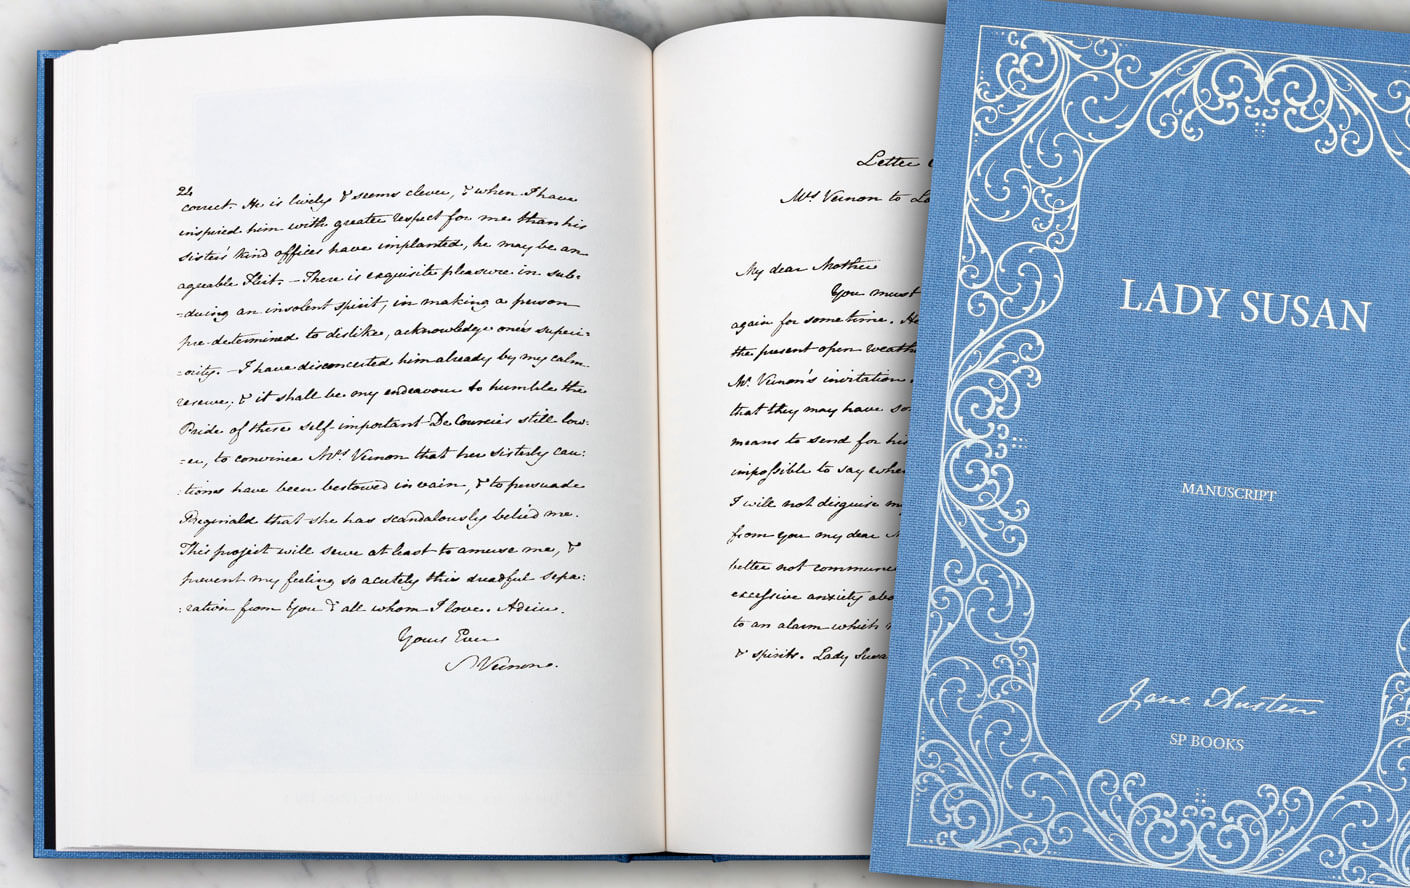 24
correct. He is lively & seems clever, & when I have
inspired him with greater respect for me than his
sister's kind offices have implanted, he may be an
agreable Flirt. — There is exquisite pleasure in sub:
:duing an insolent spirit, in making a person
pre-determined to dislike, acknowledge one's superi:
:ority. — I have disconcerted him already by my calm
reserve; & it shall be my endeavour to humble the
Pride of these self-important De Courcies still low:
:er, to convince Mrs Vernon that her sisterly cau:
:tions have been bestowed in vain, & to persuade
Reginald that she has scandalously belied me.
This project will serve at least to amuse me, &
prevent my feeling so acutely this dreadful sepa:
:ration from You & all whom I love. Adeiu.
Yours Ever
S Vernon.
Letter
Mrs Vernon to
My dear Mother
You must
again for some time. He
the present open weath
Mr Vernon's invitation
that they may have so
means to send for his
impossible to say when
I will not disguise my
from you my dear
better not communi
excessive anxiety abo
to an alarm which
& spirits. Lady Susa
LADY SUSAN
MANUSCRIPT
Jane Austen
SP BOOKS